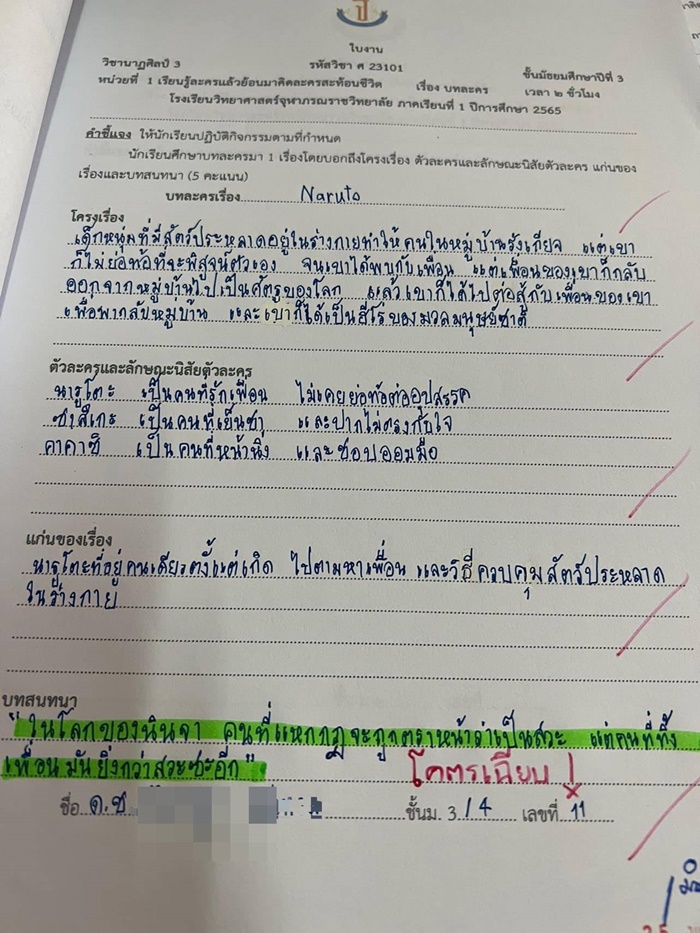 ใบงาน
วิชานาฏศิลป์ 3 รหัสวิชา ศ 23101 ชั้นมัธยมศึกษาปีที่ 3
หน่วยที่ 1 เรียนรู้ละครแล้วย้อนมาคิดละครสะท้อนชีวิต เรื่อง บทละคร เวลา ๒ ชั่วโมง
โรงเรียนวิทยาศาสตร์จุฬาภรณราชวิทยาลัย ภาคเรียนที่ 1 ปีการศึกษา 2565
คำชี้แจง ให้นักเรียนปฏิบัติกิจกรรมตามที่กำหนด
นักเรียนศึกษาบทละครมา 1 เรื่องโดยบอกถึงโครงเรื่อง ตัวละครและลักษณะนิสัยตัวละคร แก่นของ
เรื่องและบทสนทนา (5 คะแนน)
บทละครเรื่อง Naruto
โครงเรื่อง
เด็กหนุ่มที่มีสัตว์ประหลาดอยู่ในร่างกายทำให้คนในหมู่บ้านรังเกียจ แต่เขา
ก็ไม่ย่อท้อที่จะพิสูจน์ตัวเอง จนเขาได้พบกับเพื่อน แต่เพื่อนของเขาก็กลับ
ออกจากหมู่บ้านไปเป็นศัตรูของโลก แล้วเขาก็ได้ไปต่อสู้กับเพื่อนของเขา
เพื่อพากลับหมู่บ้าน และเขาก็ได้เป็นฮีโร่ของมวลมนุษย์ชาติ
ตัวละครและลักษณะนิสัยตัวละคร
นารูโตะ เป็นคนที่รักเพื่อน ไม่เคยย่อท้อต่ออุปสรรค
ซาสึเกะ เป็นคนที่เย็นชา และปากไม่ตรงกับใจ
คาคาชิ เป็นคนที่หน้านิ่ง และชอบออมมือ
แก่นของเรื่อง
นารูโตะที่อยู่คนเดียวตั้งแต่เกิด ไปตามหาเพื่อน และวิธีควบคุมสัตว์ประหลาด
ในร่างกาย
บทสนทนา
"ในโลกของนินจา คนที่แหกกฎจะถูกตราหน้าว่าเป็นสวะ แต่คนที่ทิ้ง
เพื่อนมันยิ่งกว่าสวะซะอีก" โคตรเฉียบ!
ชื่อ ด.ช ชั้นม. 3/4 เลขที่ 11